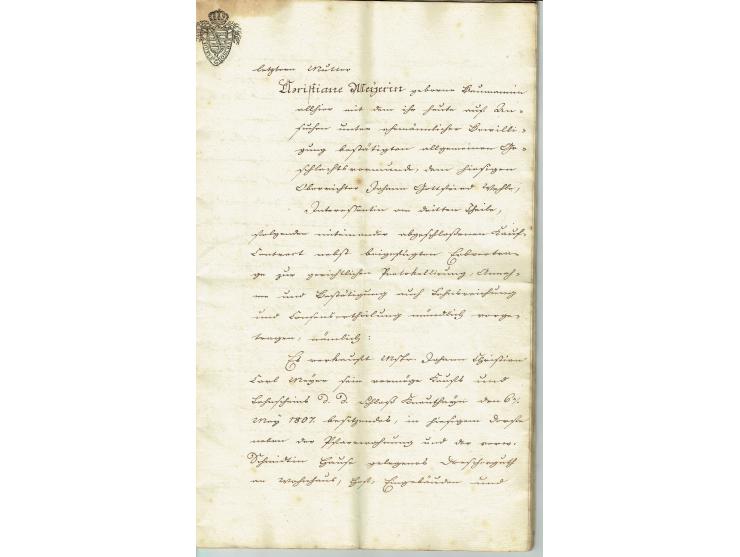 letztern Mutter
Christiane Meyerin geborne Baumannin
allhier mit dem ihr heute auf An-
suchen unter ehemännlicher Bewilli-
gung bestätigten allgemeinen Ge-
schlechtsvormunde, dem hiesigen
Oberrichter Johann Gottfried
Interessentin am dritten Theile,
folgenden miteinander abgeschloßenen Kauf-
Contract nebst beigefügten Erbvertra-
ge zur gerichtlichen Protokollirung, Annah-
me und Bestätigung auch Lehnsreichung
und Consensertheilung mündlich vorge-
tragen, nämlich:
Es verkauft Mstr. Johann Christian
Carl Meyer sein vermöge Kaufs und
Lehnscheins d. d. Schloß Knauthayn den
May 1807. besitzendes, in hiesigem Dorfe
neben der Pfarrwohnung und der verw.
Schmidtin Hause gelegenes Drescherguth
an Wohnhaus, Hof, Eingebäuden und